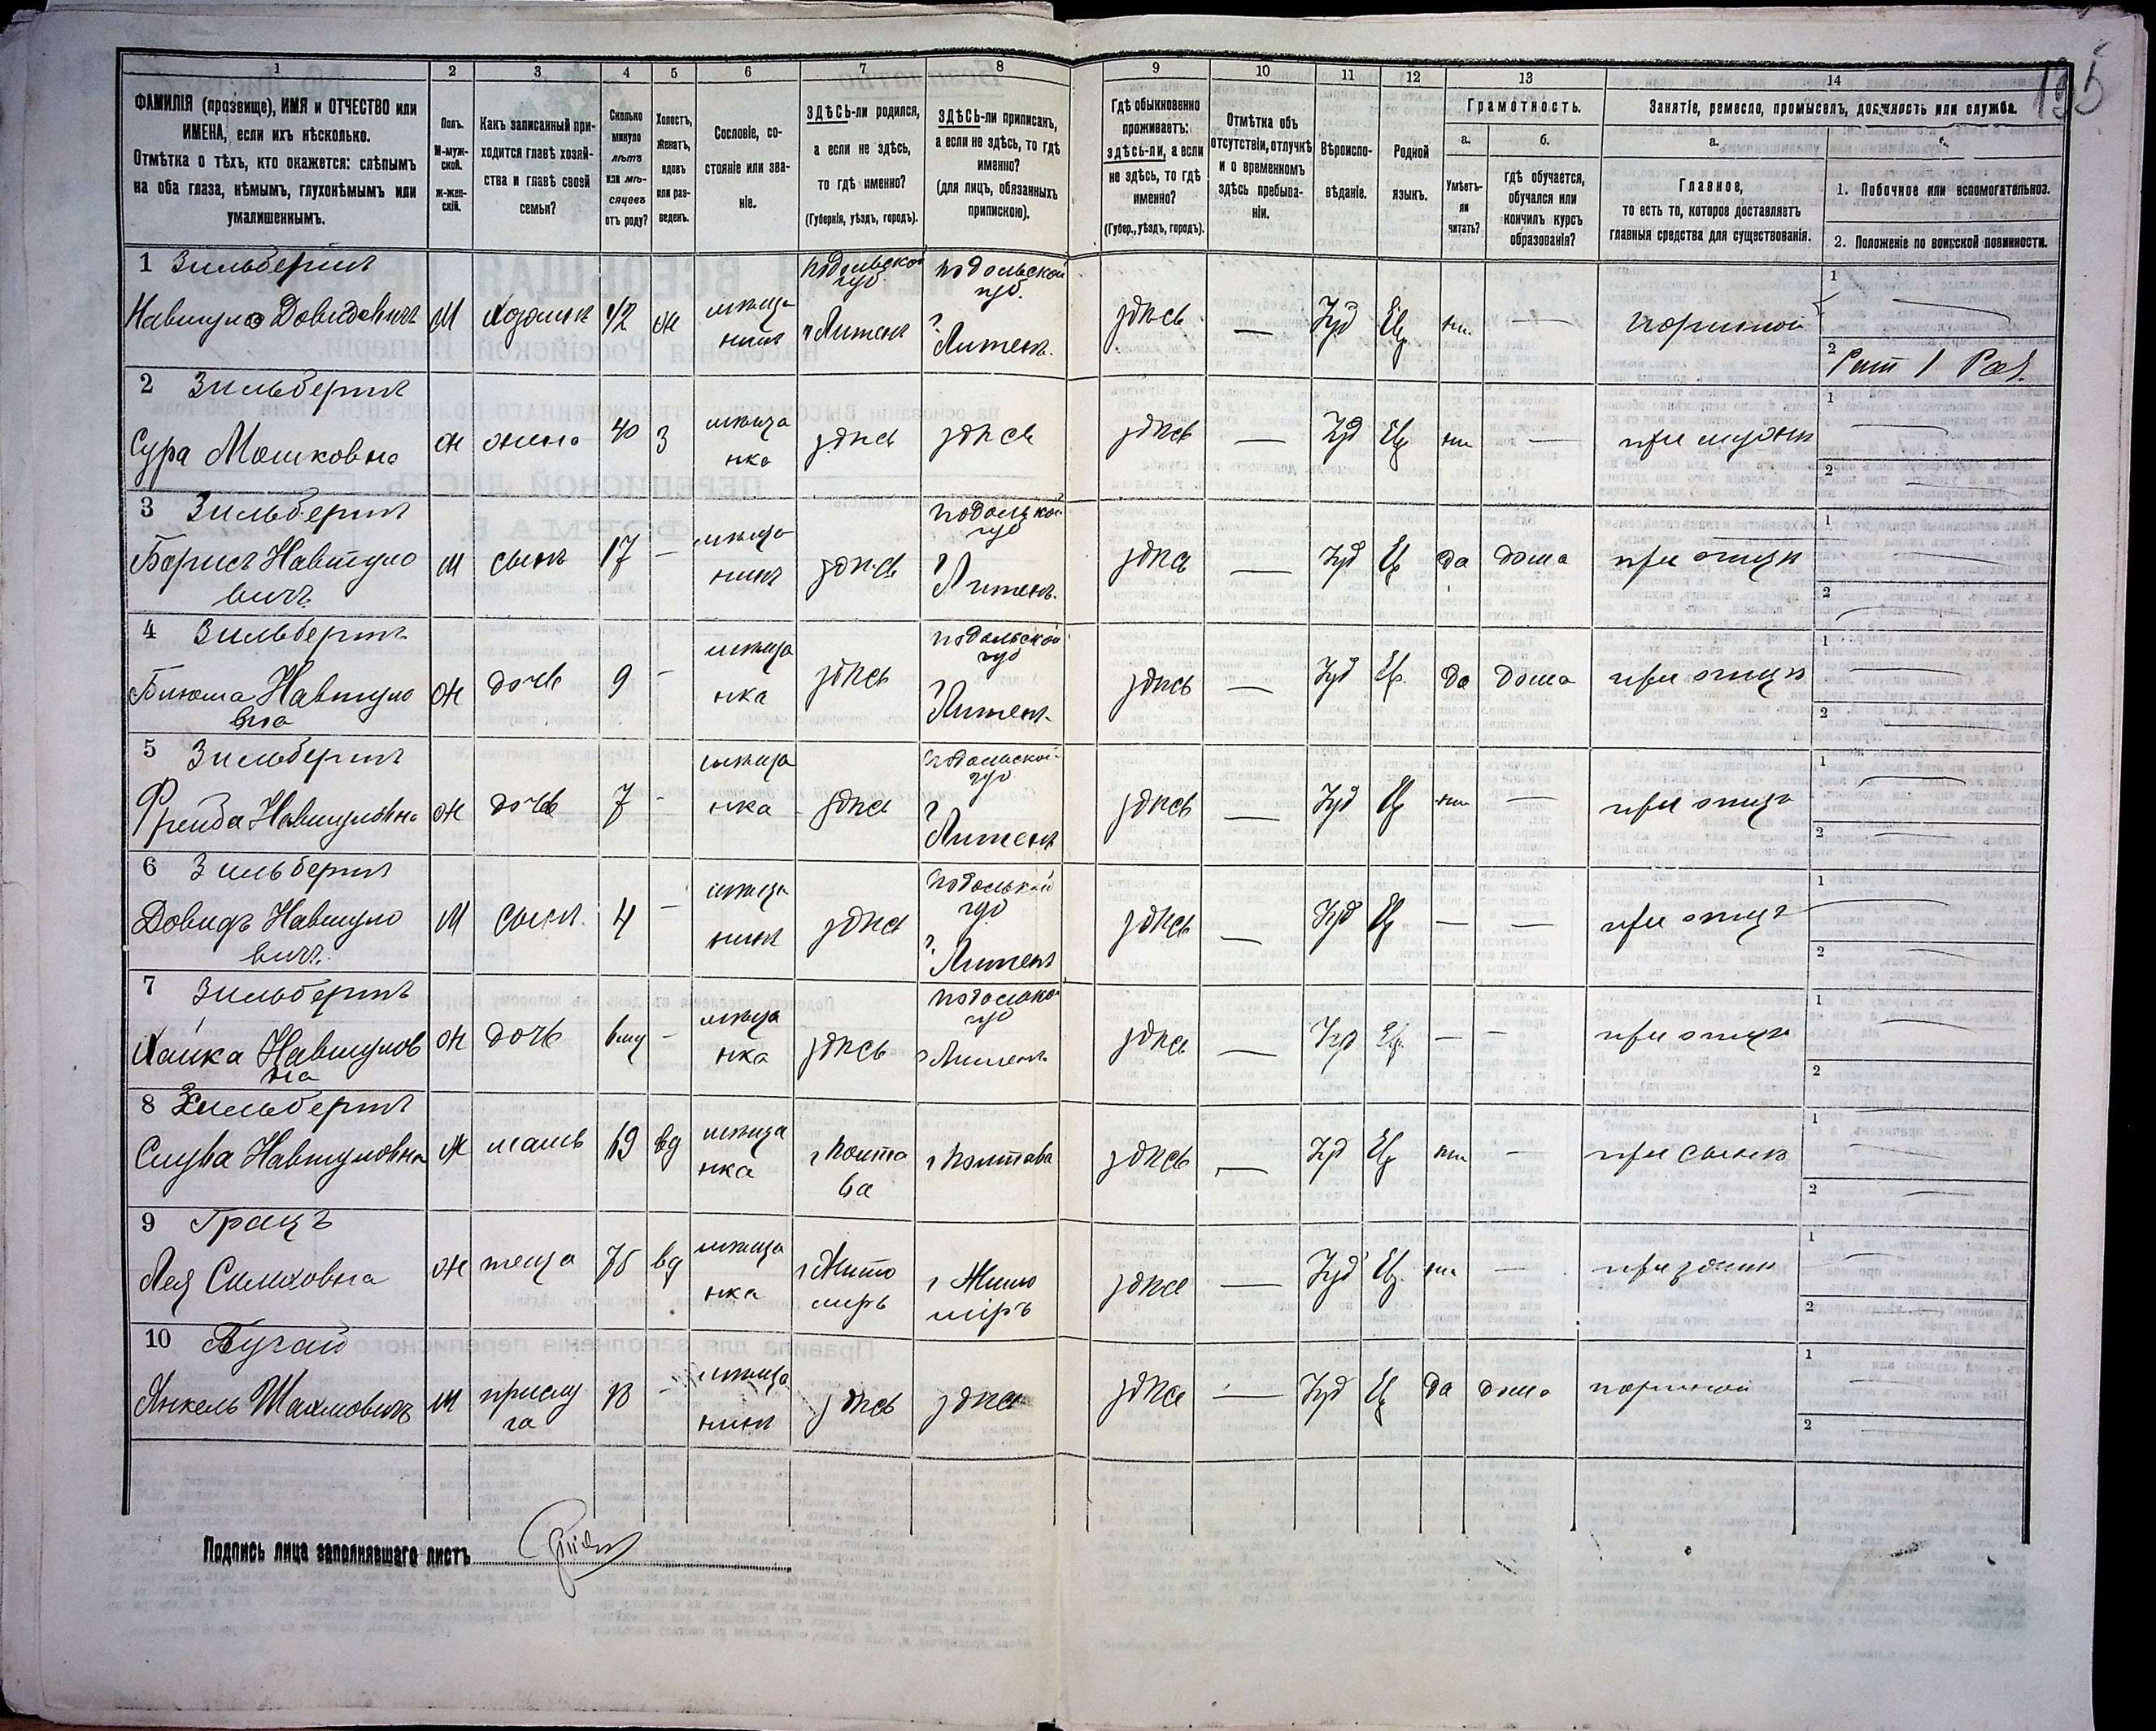 155
1 2 3 4 5 6 7 8 9 10 11 12 13 14
ФАМИЛІЯ (прозвище), ИМЯ и ОТЧЕСТВО или
ИМЕНА, если ихъ нѣсколько.
Отмѣтка о тѣхъ, кто окажется: слѣпымъ
на оба глаза, нѣмымъ, глухонѣмымъ или
умалишеннымъ.
Полъ.
М-муж-
ской.
Ж-жен-
скій.
Какъ записанный при-
ходится главѣ хозяй-
ства и главѣ своей
семьи?
Сколько
минуло
лѣтъ
или мѣ-
сяцевъ
отъ роду?
Холостъ,
женатъ,
вдовъ
или раз-
веденъ.
Сословіе, со-
стояніе или зва-
ніе.
ЗДѢСЬ-ли родился,
а если не здѣсь,
то гдѣ именно?
(Губернія, уѣздъ, городъ).
ЗДѢСЬ-ли приписанъ,
а если не здѣсь, то гдѣ
именно?
(для лицъ, обязанныхъ
припискою).
Гдѣ обыкновенно
проживаетъ:
здѣсь-ли, а если
не здѣсь, то гдѣ
именно?
(Губер., уѣздъ, городъ).
Отмѣтка объ
отсутствіи, отлучкѣ
и о временномъ
здѣсь пребыва-
ніи.
Вѣроиспо-
вѣданіе.
Родной
языкъ.
Грамотность.
а.
Умѣетъ-
ли
читать?
б.
гдѣ обучается,
обучался или
кончилъ курсъ
образованія?
Занятіе, ремесло, промыселъ, должность или служба.
а.
Главное,
то есть то, которое доставляетъ
главныя средства для существованія.
1. Побочное или вспомогательное.
2. Положеніе по воинской повинности.
1 Зильберитъ
Навтуло Довидовичъ М Хозяинъ 42 ж мѣща
нинъ Подольской
губ.
г Литенъ Подольской
губ.
г Литенъ. здѣсь — Іуд Евр нѣт — портной 1 —
2 Рат 1 Раз.
2 Зильберитъ
Сура Мошковна ж жена 40 З мѣща
нка здѣсь здѣсь здѣсь — Іуд Евр нѣт — при мужѣ 1 —
2
3 Зильберитъ
Борисъ Навтуло
вичъ м сынъ 17 — мѣща
нинъ здѣсь Подольской
губ
г Литенъ. здѣсь — Іуд Ев да дома при отцѣ 1 —
2 —
4 Зильберитъ
Навтуло
вна ж дочь 9 — мѣща
нка здѣсь Подольской
губ
г Литенъ здѣсь — Іуд Ев. да дома при отцѣ 1 —
2 —
5 Зильберитъ
Фрейда Навтуловна ж дочь 7 - мѣща
нка здѣсь Подольской
губ
г Литенъ здѣсь — Іуд Ев нѣт — при отцѣ 1 —
2 —
6 Зильберитъ
Довидъ Навтуло
вичъ. М сынъ. 4 — мѣща
нинъ здѣсь Подольской
губ
г. Литенъ здѣсь — Іуд Ев — — при отцѣ 1 —
2 —
7 Зильберитъ
Хайка Навтулов
на ж дочь 6 мц — мѣща
нка здѣсь Подольско
губ
г Литенъ здѣсь — Іуд Ев. — — при отцѣ 1 —
2
8 Зильберитъ
Навтуловна ж мать 69 вд мѣща
нка г Полта
ва г Полтава здѣсь — Іуд Ев нѣт — при сынѣ 1 —
2 —
9 Грацъ
Лея Симховна ж теща 75 вд мѣща
нка г Жито
миръ г Жито
міръ здѣсь — Іуд Ев. нѣт — при зятѣ 1 —
2 —
10 Бугай
Янкель м прислу
га 18 - мѣща
нинъ здѣсь здѣсь здѣсь — Іуд Ев да дома портной 1 —
2 —
Подпись лица заполнявшаго листъ